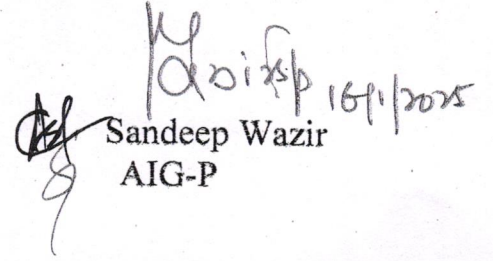 16/1/2025
Sandeep Wazir
AIG-P